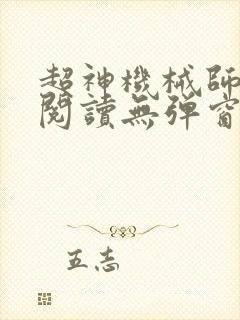 超神機械師
閱讀無彈窗
五志